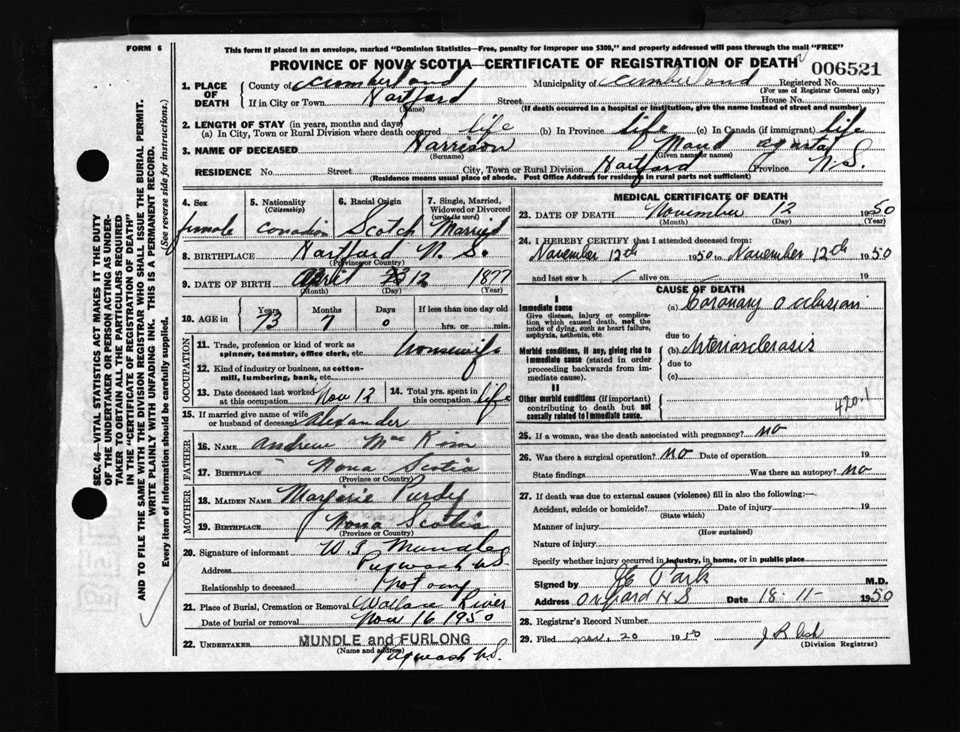 FORM 6
This form if placed in an envelope, marked "Dominion Statistics—Free, penalty for improper use $300," and properly addressed will pass through the mail "FREE"
PROVINCE OF NOVA SCOTIA—CERTIFICATE OF REGISTRATION OF DEATH 006521
1. PLACE OF DEATH
County of Cumberland Municipality of Cumberland Registered No.
(For use of Registrar General only)
If in City or Town Hartford Street House No.
(Name) (If death occurred in a hospital or institution, give the name instead of street and number)
2. LENGTH OF STAY (in years, months and days)
(a) In City, Town or Rural Division where death occurred life (b) In Province life (c) In Canada (if immigrant) life
3. NAME OF DECEASED Harrison Maud
(Surname) (Given name or names)
RESIDENCE No. Street City, Town or Rural Division Hartford Province N.S.
(Residence means usual place of abode. Post Office Address for residences in rural parts not sufficient)
4. Sex female
5. Nationality (Citizenship) Canadian
6. Racial Origin Scotch
7. Single, Married, Widowed or Divorced (write the word) Married
8. BIRTHPLACE Hartford N. S.
(Province or Country)
9. DATE OF BIRTH April 12 1877
(Month) (Day) (Year)
10. AGE in Years 73 Months 7 Days 0 If less than one day old hrs. or min.
OCCUPATION
11. Trade, profession or kind of work as spinner, teamster, office clerk, etc. housewife
12. Kind of industry or business, as cotton-mill, lumbering, bank, etc.
13. Date deceased last worked at this occupation Nov 12
14. Total yrs. spent in this occupation life
15. If married give name of wife or husband of deceased Alexander
FATHER
16. NAME Andrew Mac Kim
17. BIRTHPLACE Nova Scotia
(Province or Country)
MOTHER
18. MAIDEN NAME Marjorie Purdy
19. BIRTHPLACE Nova Scotia
(Province or Country)
20. Signature of informant Mundle
Address Pugwash N.S.
Relationship to deceased Not any
21. Place of Burial, Cremation or Removal Wallace River
Date of burial or removal Nov 16 1950
22. UNDERTAKER MUNDLE and FURLONG
(Name and address) Pugwash N.S.
MEDICAL CERTIFICATE OF DEATH
23. DATE OF DEATH November 12 1950
(Month) (Day) (Year)
24. I HEREBY CERTIFY that I attended deceased from:
November 12th 1950 to November 12th 1950
and last saw h alive on 19
CAUSE OF DEATH
I
Immediate cause
Give disease, injury or complication which caused death, not the mode of dying, such as heart failure, asphyxia, asthenia, etc
(a) Coronary Occlusion
due to
Morbid conditions, if any, giving rise to immediate cause (stated in order proceeding backwards from immediate cause).
(b) Arteriosclerosis
due to
(c)
II
Other morbid conditions (if important) contributing to death but not causally related to immediate cause.
420.1
25. If a woman, was the death associated with pregnancy? no
26. Was there a surgical operation? no Date of operation 19
State findings Was there an autopsy? no
27. If death was due to external causes (violence) fill in also the following:—
Accident, suicide or homicide? Date of injury 19
(State which)
Manner of injury
(How sustained)
Nature of injury
Specify whether injury occurred in industry, in home, or in public place
Signed by Park M.D.
Address Oxford N S Date 18-11- 1950
28. Registrar's Record Number
29. Filed Nov. 20 1950
(Division Registrar)
SEC. 46—VITAL STATISTICS ACT MAKES IT THE DUTY
OF THE UNDERTAKER OR PERSON ACTING AS UNDERTAKER TO OBTAIN ALL THE PARTICULARS REQUIRED
IN THE "CERTIFICATE OF REGISTRATION OF DEATH"
AND TO FILE THE SAME WITH THE DIVISION REGISTRAR WHO SHALL ISSUE THE BURIAL PERMIT.
WRITE PLAINLY WITH UNFADING INK. THIS IS A PERMANENT RECORD.
Every item of information should be carefully supplied. (See reverse side for instructions.)